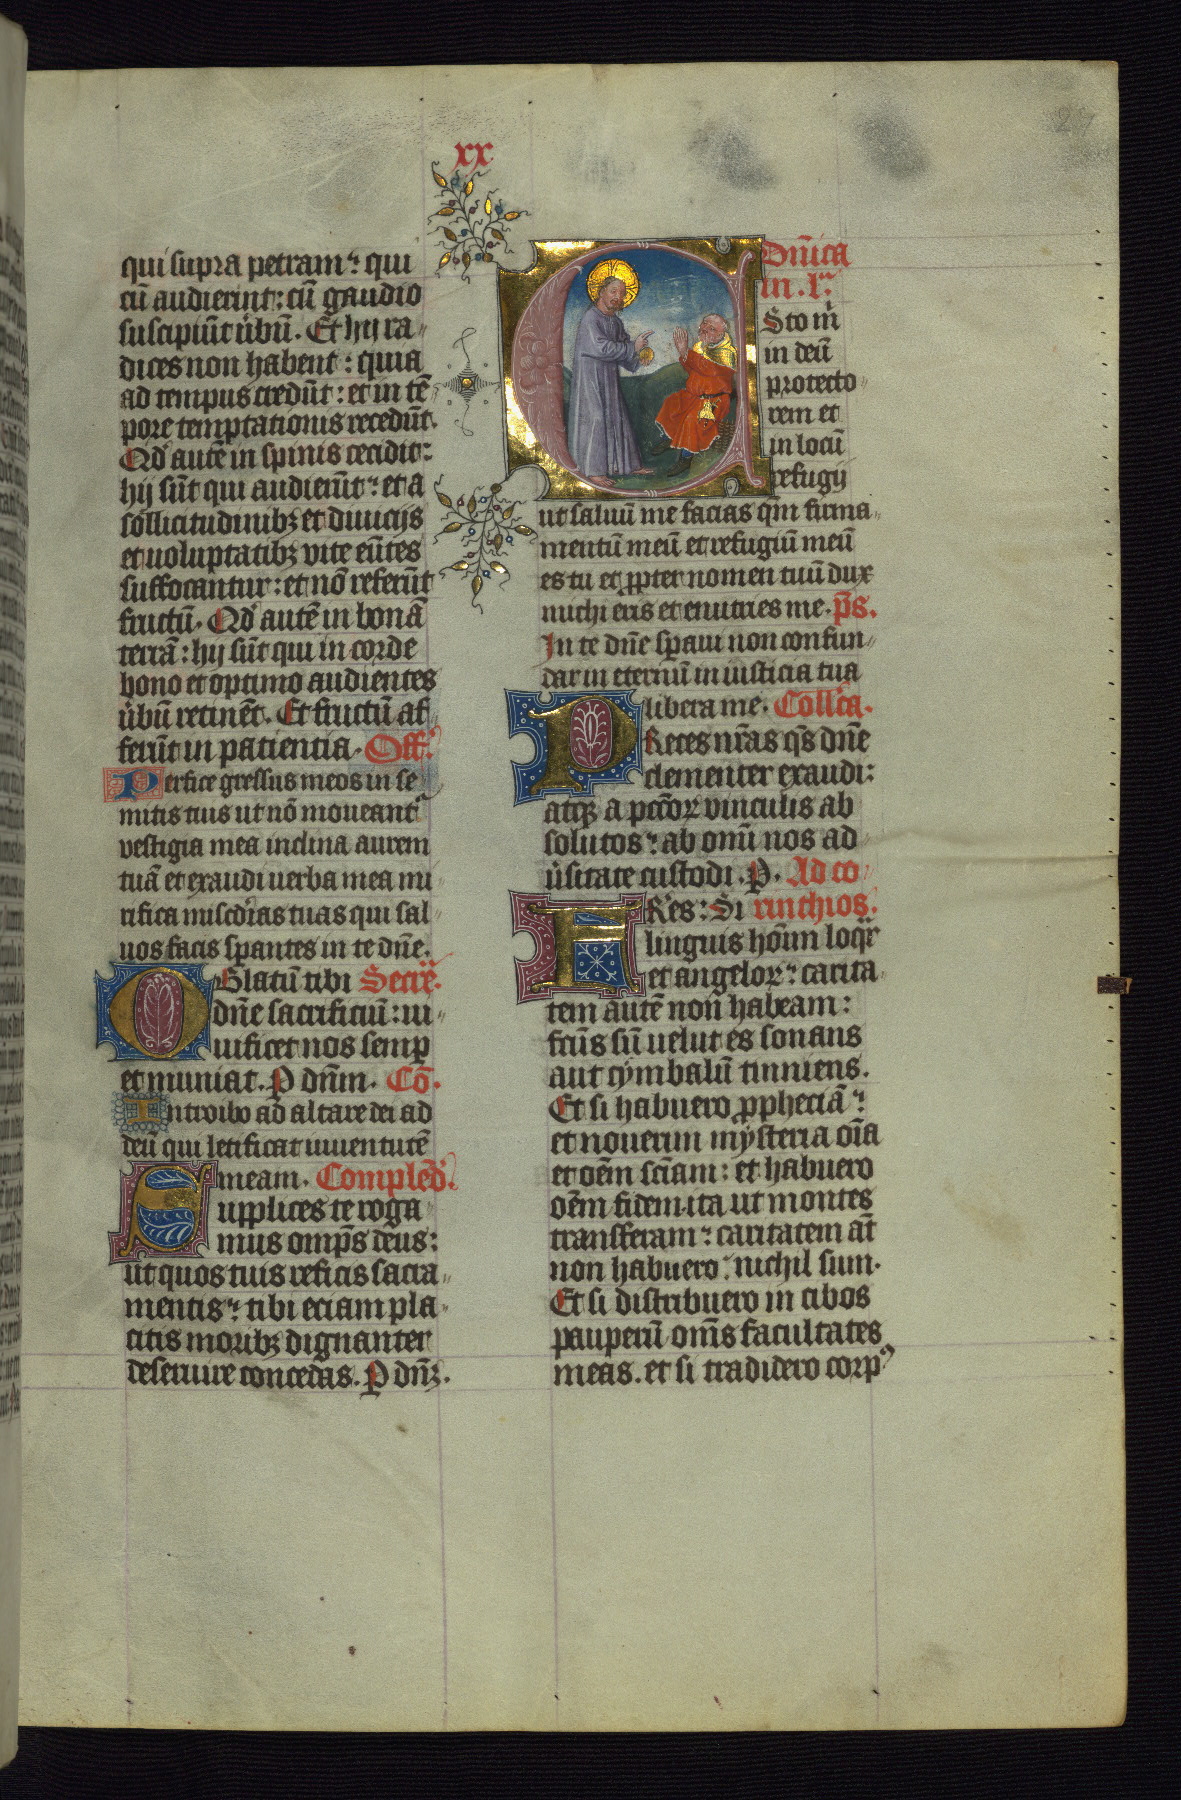 xx
qui supra petram: qui
cū audierint: cū gaudio
suscipiūt ūbū. Et hij ra
dices non habent: quia
ad tempus credūt: et in tē
pore temptationis recedūt.
Qd autē in spinis cecidit:
hij sūt qui audierūt: et a
sollicitudinibꝫ et diuicijs
et uoluptatibꝫ vite eūtes
suffocantur: et nō referūt
fructū. Qd autē in bonā
terrā: hij sūt qui in corde
bono et optimo audientes
ūbū retinēt. Et fructū af
ferūt in patientia. Off.
Perfice gressus meos in se
mitis tuis ut nō moueantʳ
vestigia mea inclina aurem
tuā et exaudi uerba mea mi
rifica miscd̄ias tuas qui sal
uos facis spantes in te dn̄e.
Oblatū tibi Secr̄.
dn̄e sacrificiū: ui
uificet nos semꝑ
et muniat. P dnm̄. Cō.
Introibo ad altare dei ad
deū qui letificat iuuentutē
meam. Complend̄.
Supplices te roga
mus omp̄s deus:
ut quos tuis reficis sacra
mentis: tibi eciam pla
citis moribꝫ dignanter
deseruire concedas. P dn̄ꝫ.
Dn̄ica
in .lͣ.
Esto m
in deū
protecto
rem et
in locū
refugij
ut saluū me facias qm̄ firma
mentū meū et refugiū meū
es tu et ꝓpter nomen tuū dux
michi eris et enutries me. p̄s.
In te dn̄e spaui non confun
dar in eternū in iusticia tua
libera me. Collc̄a.
Preces nr̄as qs̄ dn̄e
clementer exaudi:
atqꝫ a pctōꝝ vinculis ab
solutos: ab om̄i nos ad
ūsitate custodi. P. Ad co
FRes: Si rinthios.
linguis hoīm loqʳ
et angeloꝝ: carita
tem autē non habeam:
fcūs sū uelut es sonans
aut cymbalū tinniens.
Et si habuero ꝓpheciā:
et nouerim mysteria oīa
et oēm scīam: et habuero
oēm fidem ita ut montes
transferam: caritatem āt
non habuero: nichil sum.
Et si distribuero in cibos
pauperū om̄s facultates
meas. et si tradidero corpꝰ